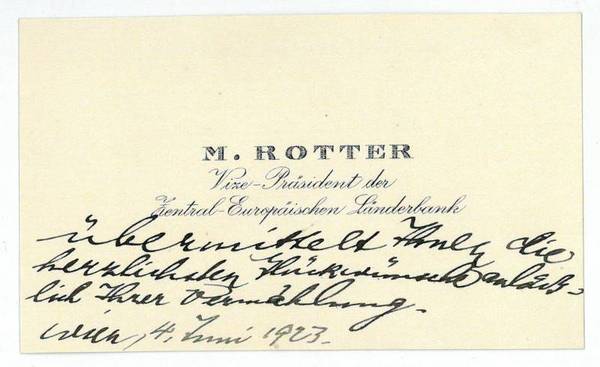 M. ROTTER
Vize-Präsident der
Zentral-Europäischen Länderbank
übermittelt Ihnen die
herzlichsten Glückwünsche anläß-
lich Ihrer Vermählung.
Wien, 4. Juni 1923.